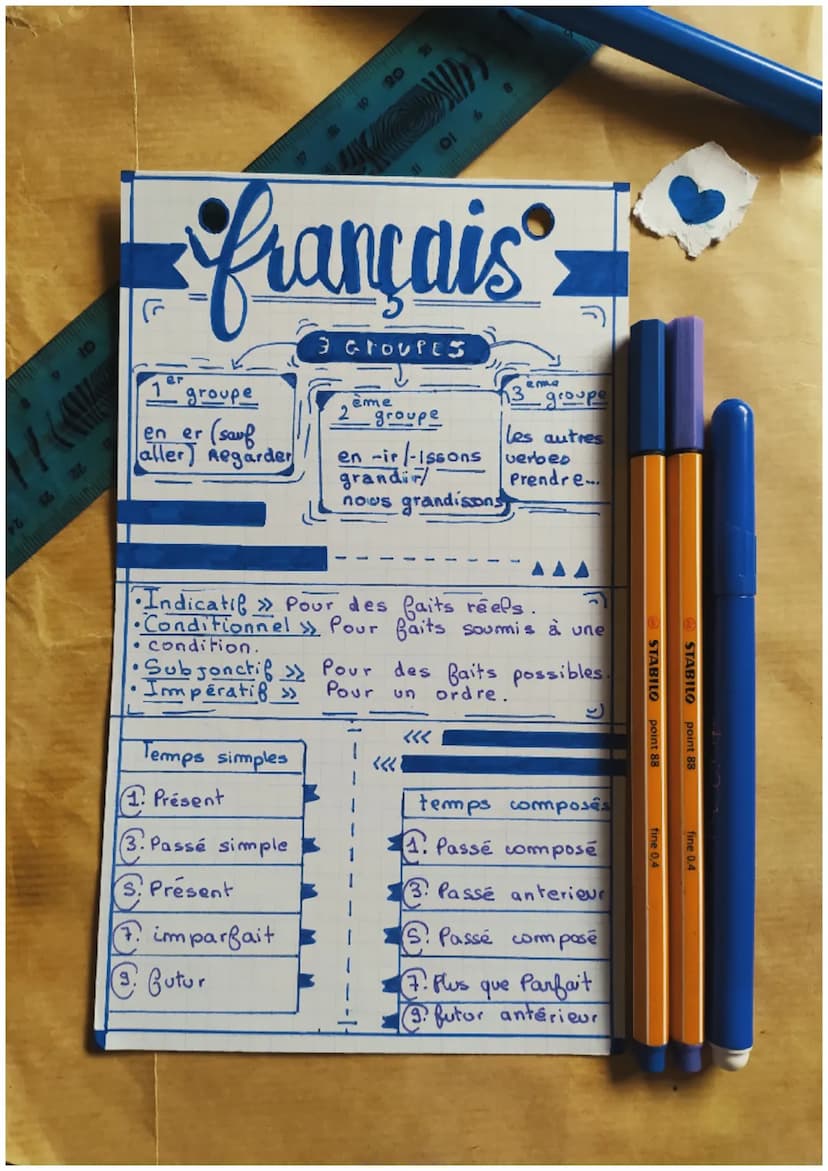 français
3 GROUPES
1er groupe
en er (sauf
aller) Regarder
2ème groupe
en -ir/-issons
grandir/
nous grandissons
3ème groupe
Les autres
verbes
Prendre...
• Indicatif >> Pour des faits réels.
• Conditionnel >> Pour faits soumis à une
• condition.
• Subjonctif >> Pour des faits possibles.
• Impératif >> Pour un ordre.
Temps simples
1. Présent
3. Passé simple
5. Présent
7. imparfait
9. futur
temps composés
1. Passé composé
3. Passé anterieur
5. Passé composé
7. Plus que Parfait
9. futur antérieur
STABILO point 88 fine 0.4
STABILO point 88 fine 0.4